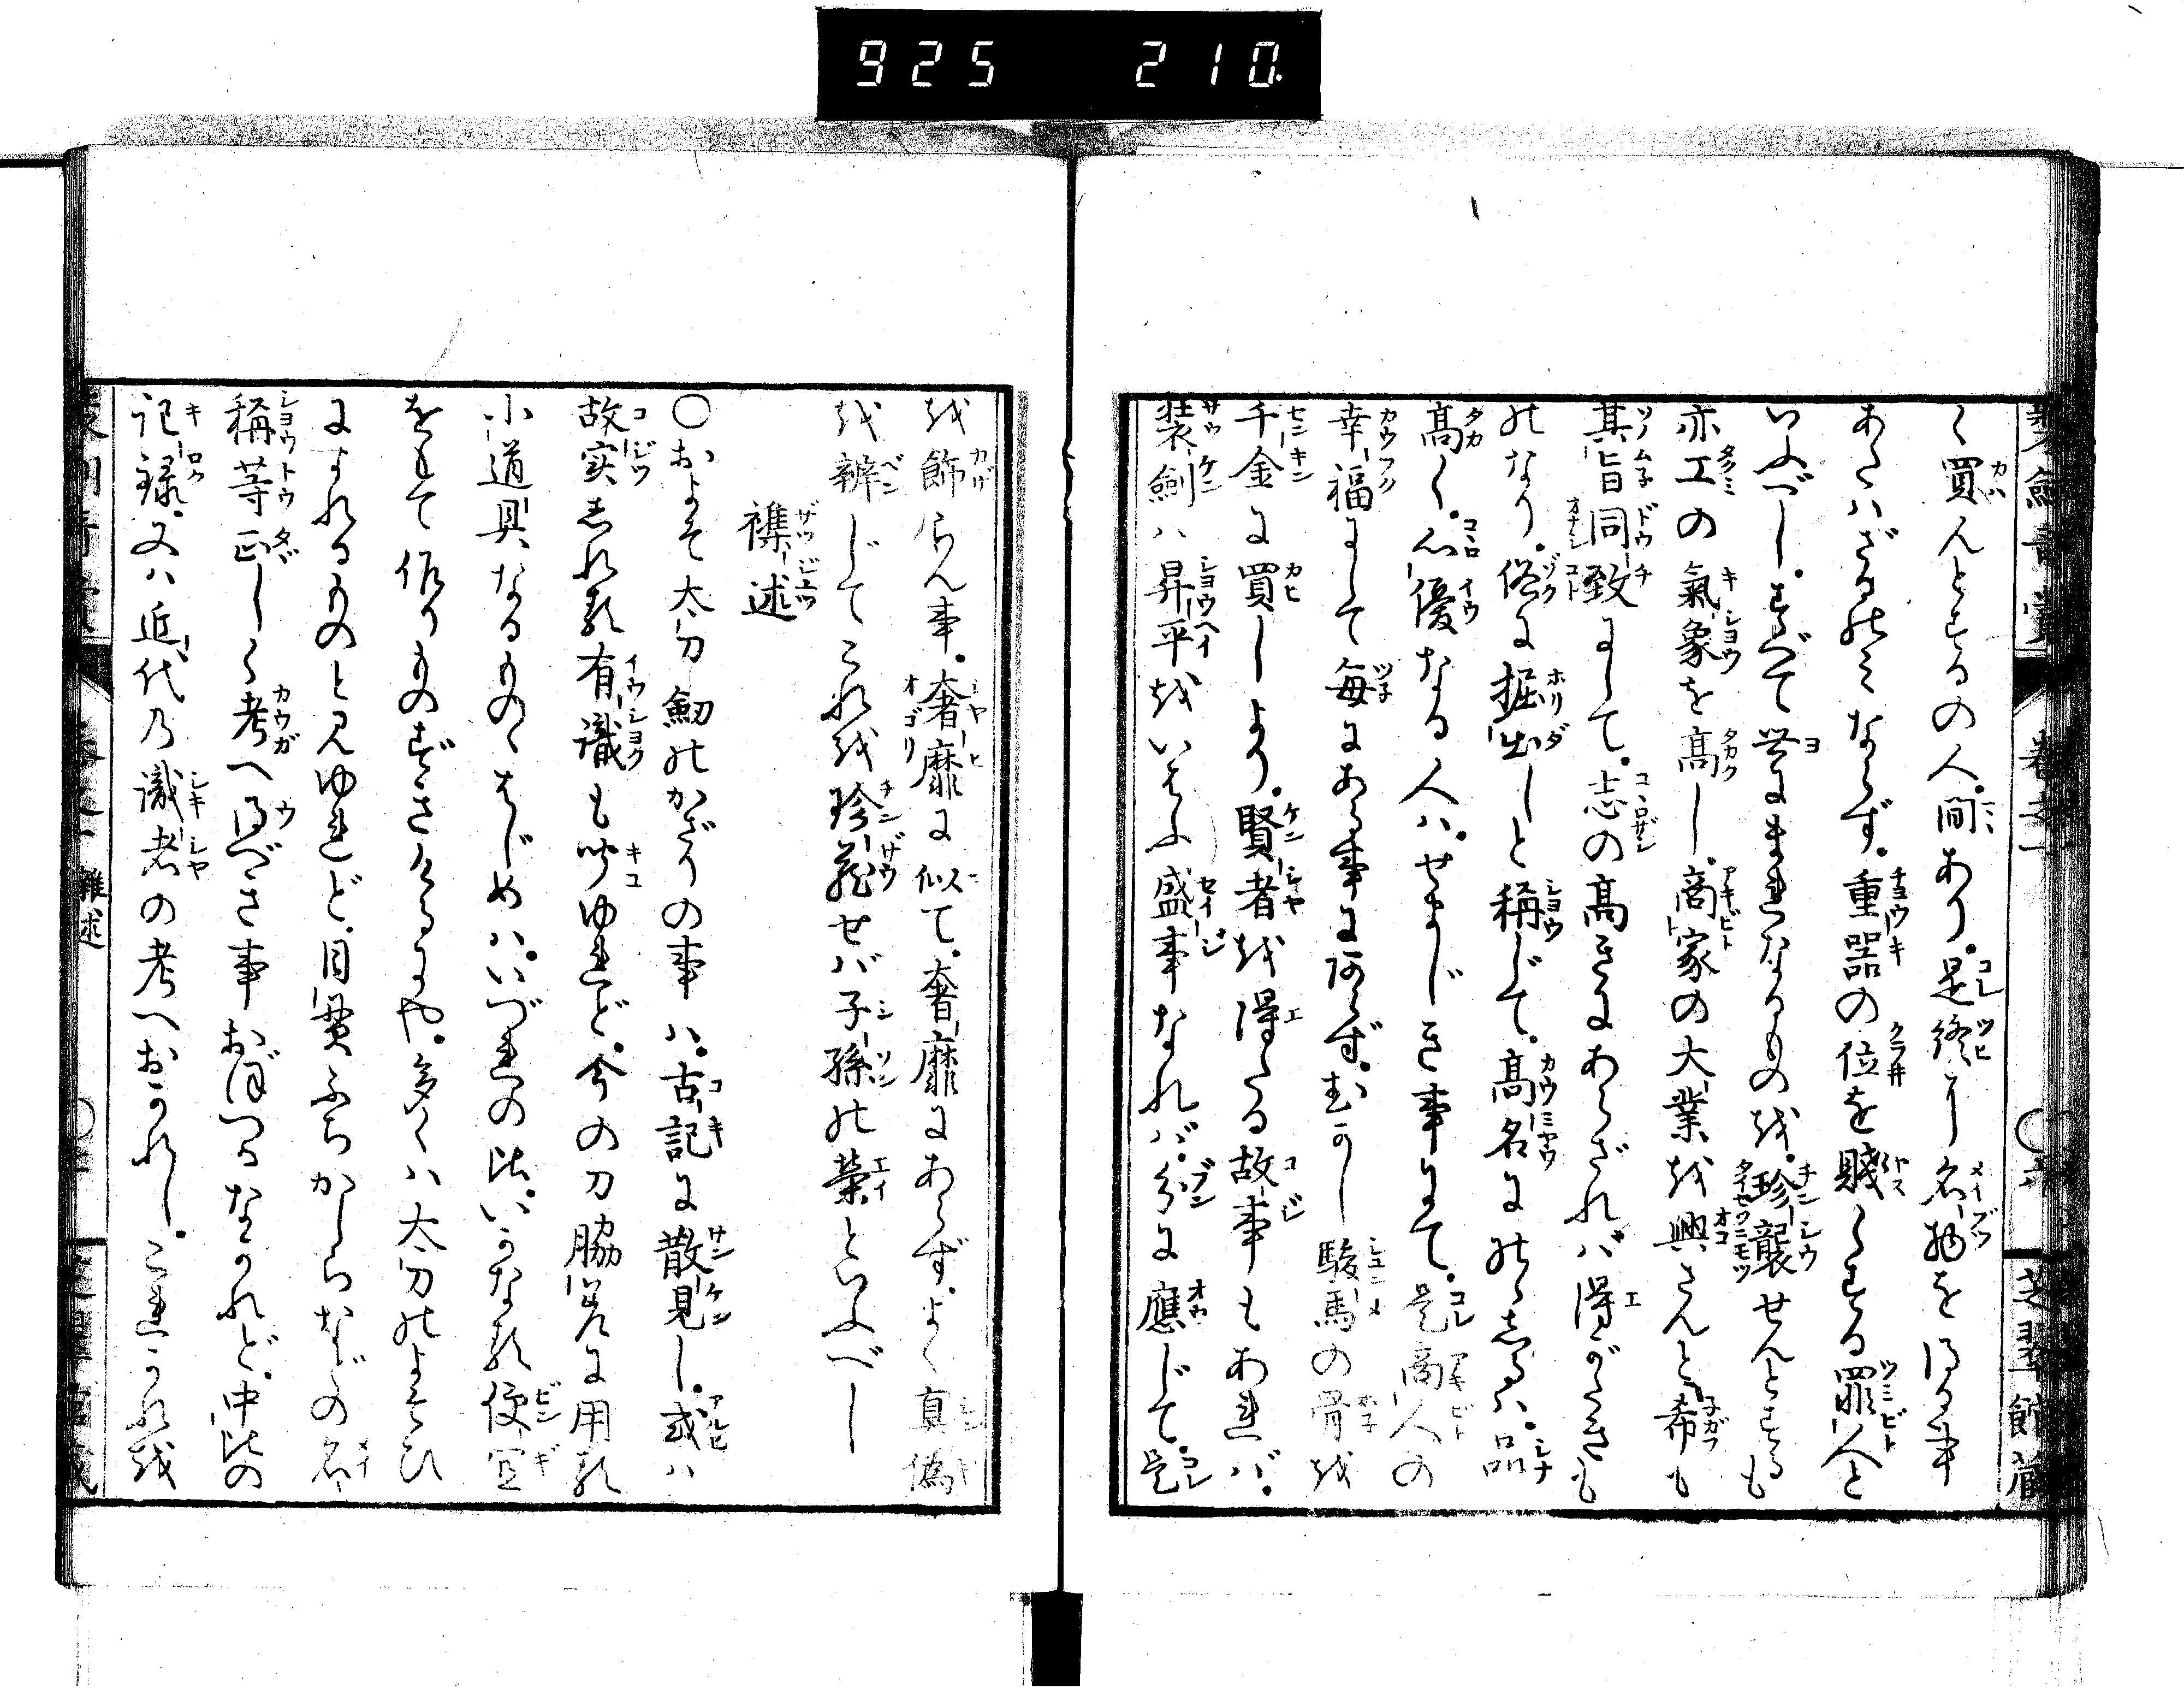 925 210
く買んとするの人間あり是終に名物を得る事
あたハざるのミならず重器の位を賤くする罪人と
いふべしすべて世にまれなるもの越珍襲せんとするも
亦工の氣象を高し商家の大業越興さんと希も
其旨同致にして志の高きにあらざれバ得がたきも
のなり俗に掘出しと稱じて高名にのゝしるハ品
高く心優なる人ハせまじき事にて是商人の
幸福にして毎にある事にあらずむかし駿馬の骨越
千金に買しより賢者越得たる故事もあれバ
装劍ハ昇平越いはふ盛事なれバ分に應じて是
越飾らん事奢靡に似て奢靡にあらずよく真偽
越辨じてこれ越珍蔵せバ子孫の榮といふべし
襍述
〇およそ太刀劒のかざりの事ハ古記に散見し或ハ
故実あれバ有識も聞ゆれど今の刀脇差に用る
小道具なるものゝはじめハいづれの比いかなる便宜
をもて作りものせさけるにや多くハ太刀のよそひ
によれるものと見ゆれど目貫ふちかしらなどの名
稱等正しく考へ得べき事おぼつかなかれど中比の
記録又ハ近代乃識者の考へおかれしこれかれ越
雜述